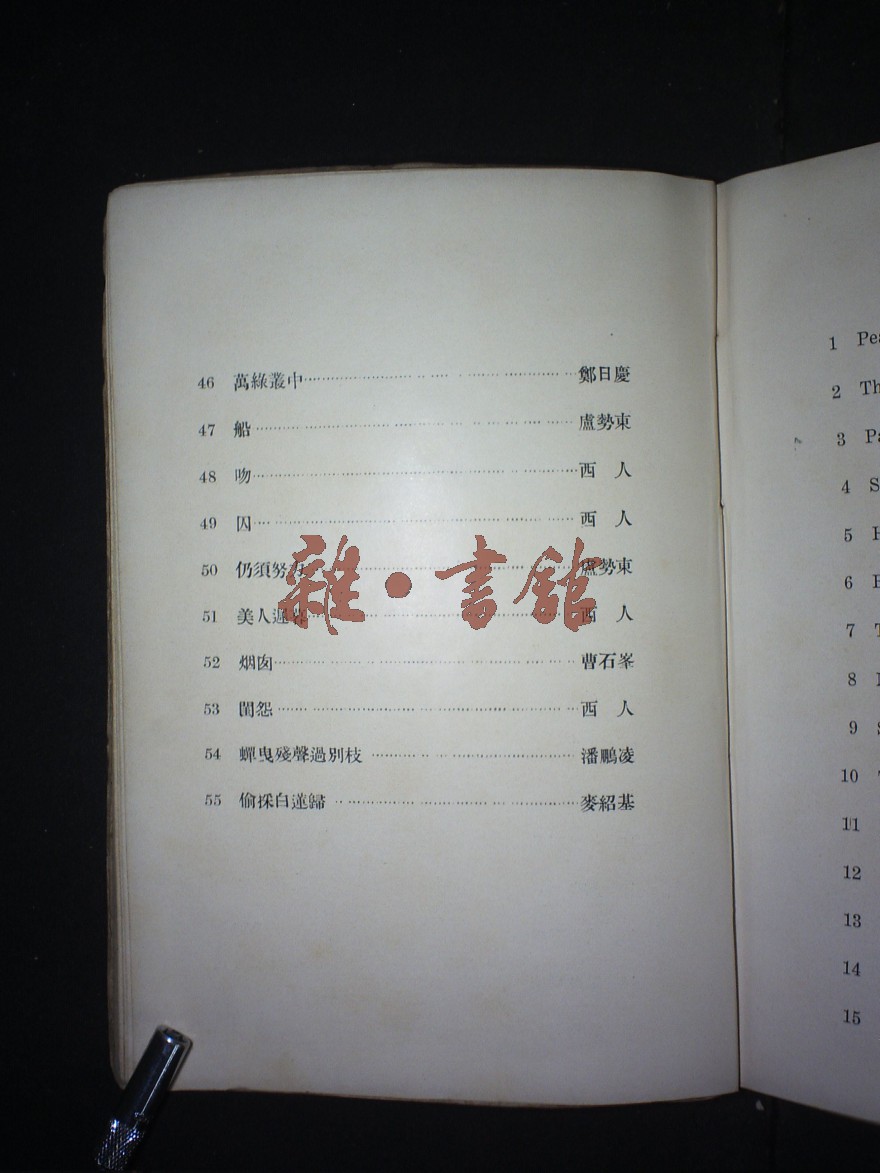 46 萬綠叢中 鄭日慶
47 船 盧勢東
48 吻 西 人
49 囚 西 人
50 仍須努力 盧勢東
51 美人遲暮 西 人
52 烟囱 曹石峯
53 閨怨 西 人
54 蟬曳殘聲過別枝 潘鵬凌
55 偷採白蓮歸 麥紹基
雜·書館
1 Pea
2 Th
3 Pa
4 S
5
6
7 T
8
9
10
11
12
13
14
15